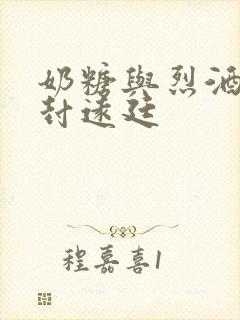 奶糖與烈酒
封遠廷
程嘉喜1